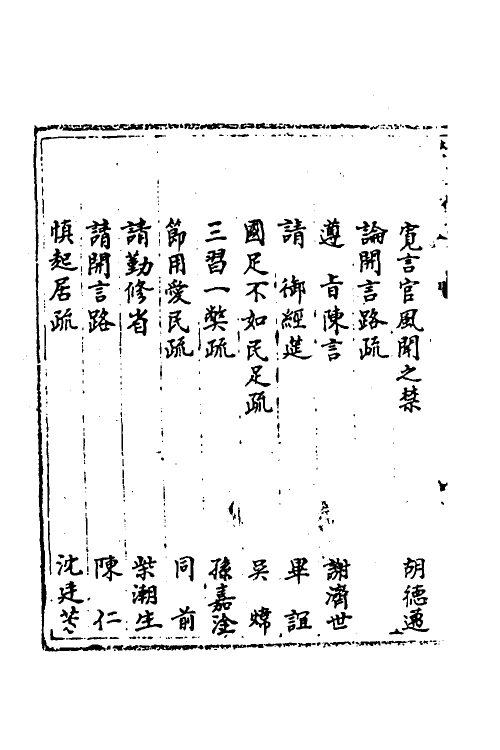 寬言官風聞之禁　胡德邁
論開言路疏
遵　旨陳言　謝濟世
請　御經筵　畢誼
國足不如民足疏　吳煒
三習一獘疏　孫嘉淦
節用愛民疏　同前
請勤修省　柴潮生
請開言路　陳仁
慎起居疏　沈廷芳